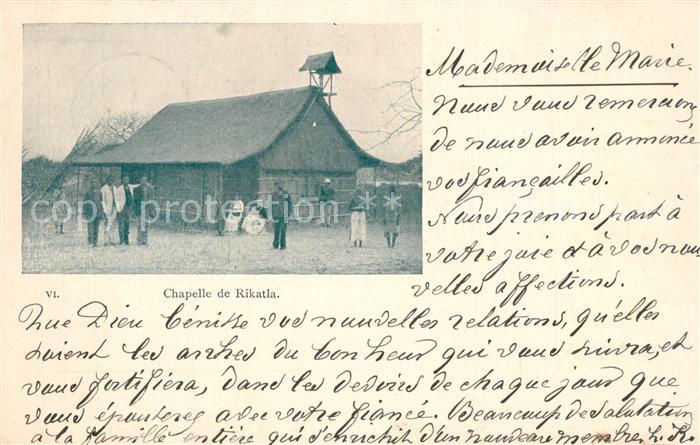 Mademoiselle Marie.
Nous vous remercions
de nous avoir annoncé
vos fiançailles.
Nous prenons part à
votre joie et à vos nou
velles affections.
VI. Chapelle de Rikatla.
Que Dieu bénisse vos nouvelles relations, qu'elles
soient les arches du bonheur qui vous suivra, et
vous fortifiera, dans les devoirs de chaque jour que
vous épouserez avec votre fiancé. Beaucoup de salutation
à la famille entière qui s'enrichit d'un nouveau membre.
copyright protection *****